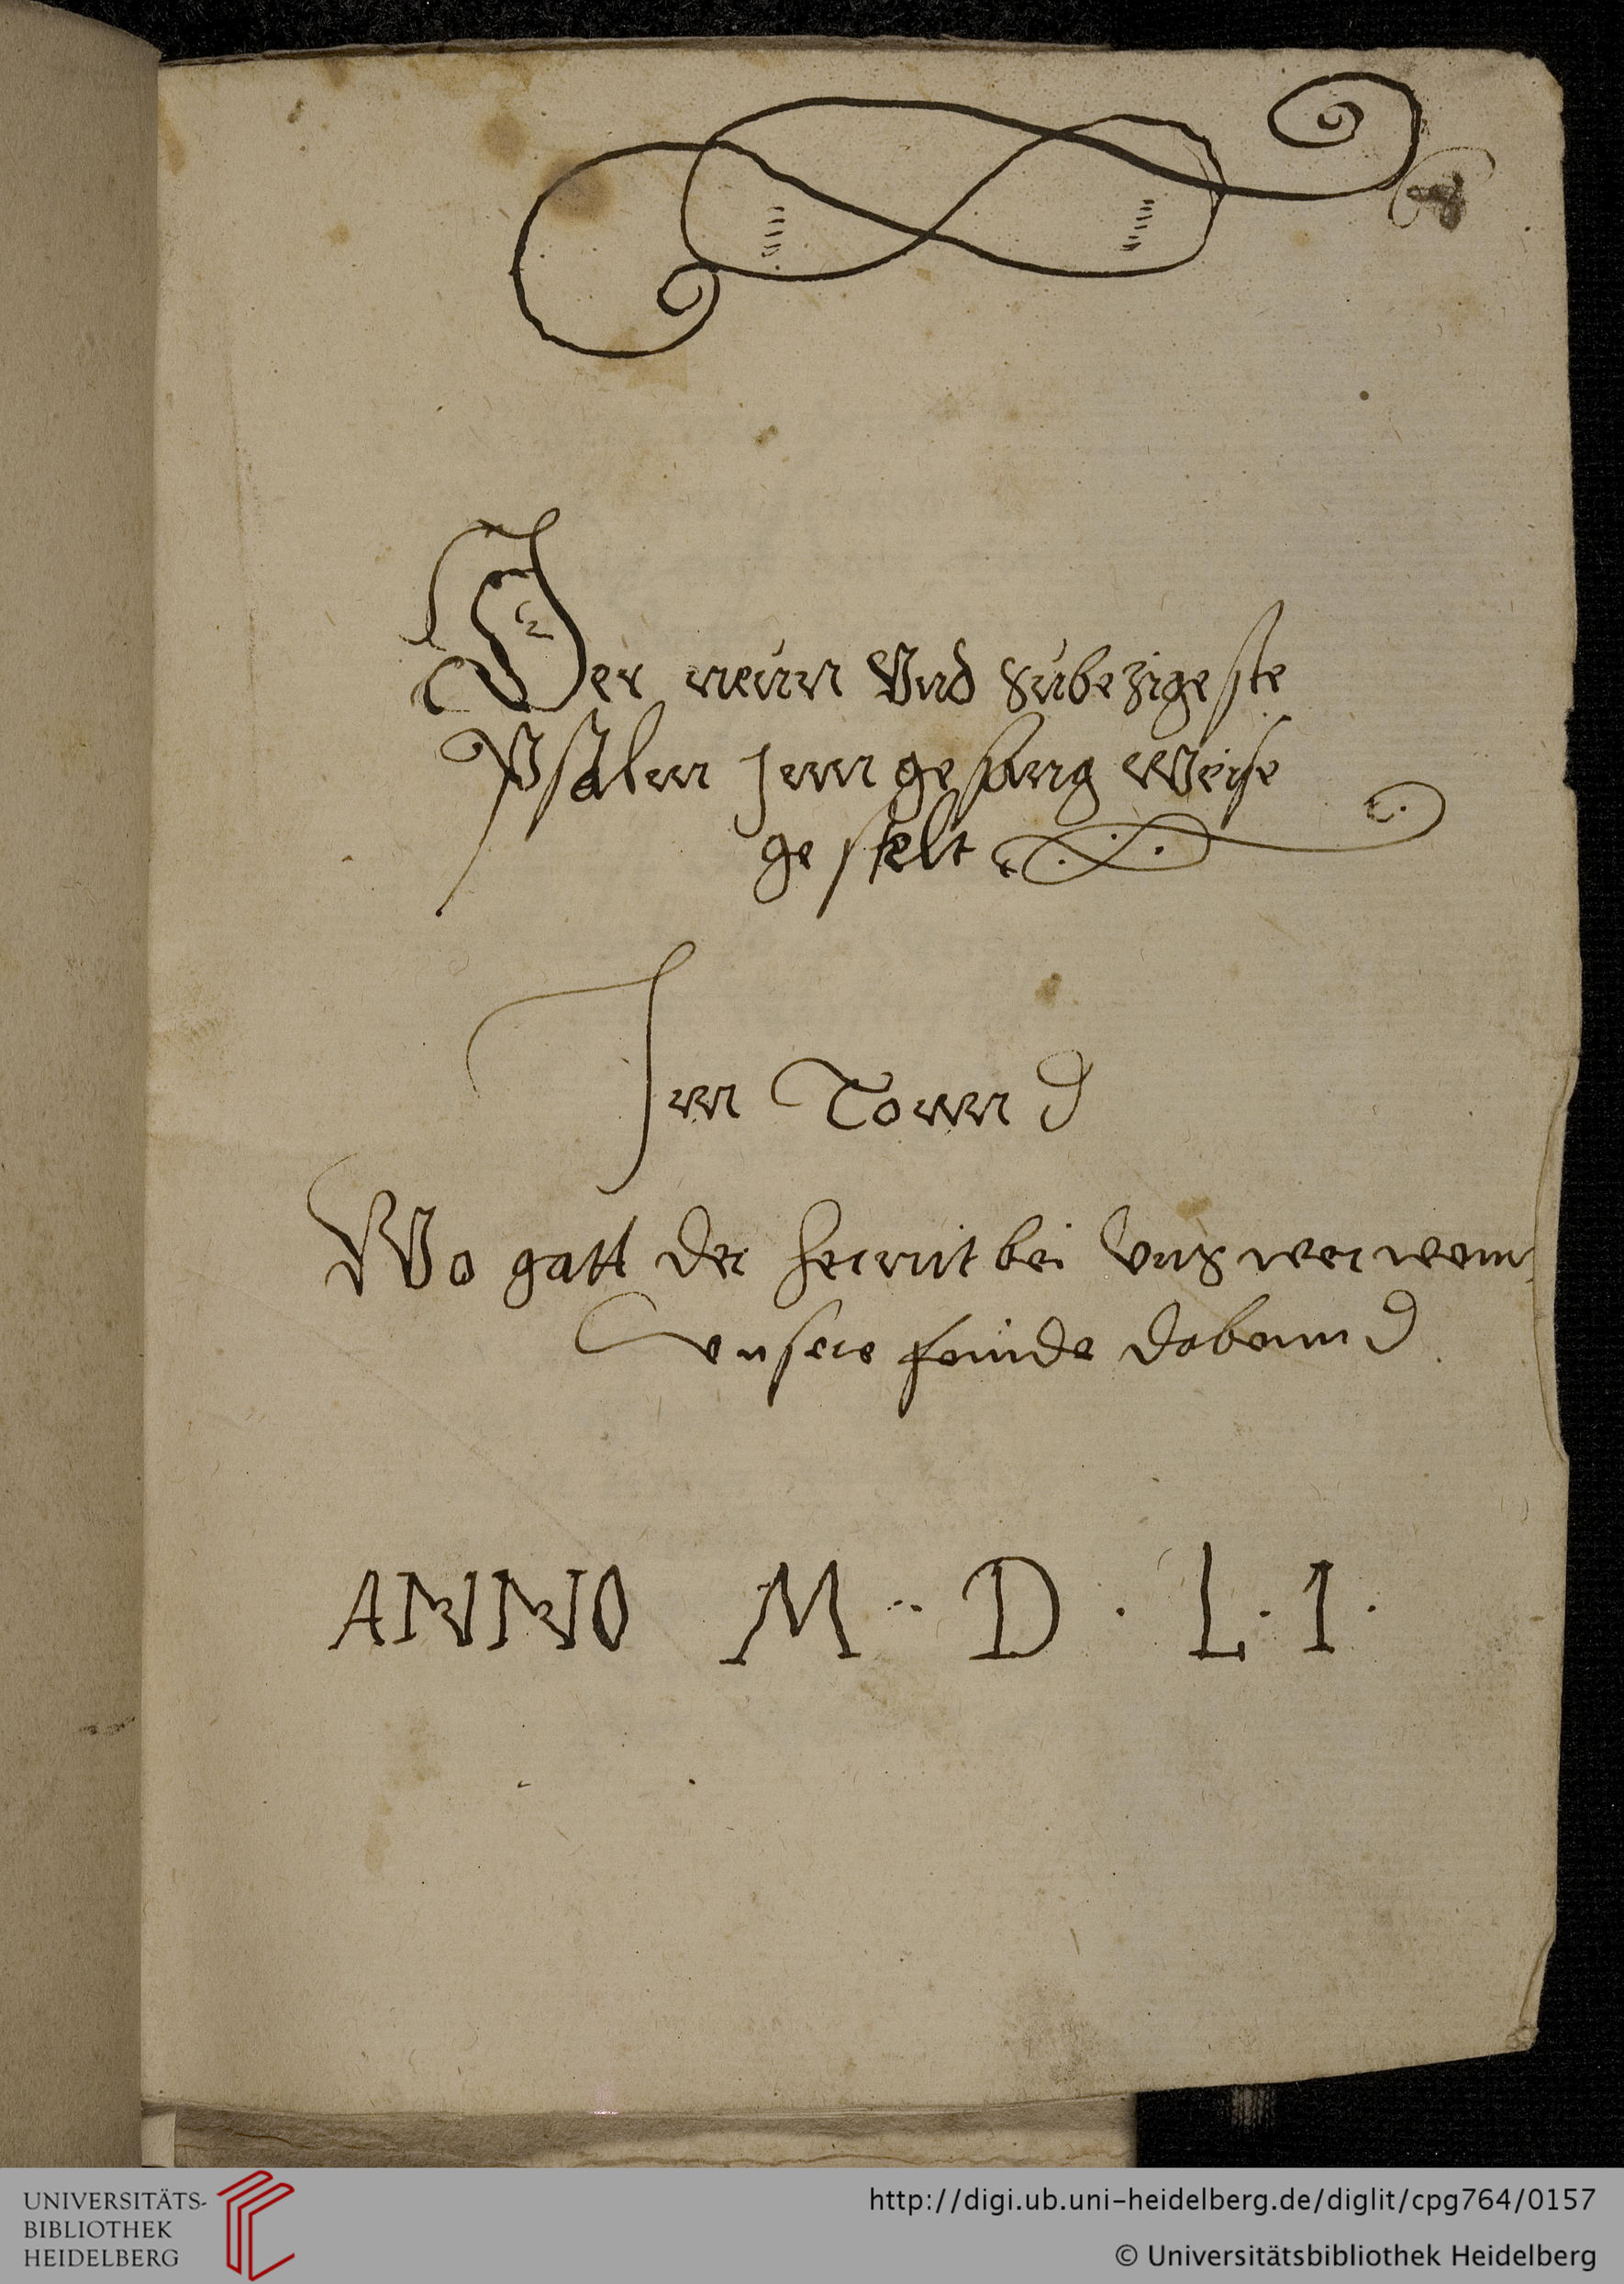 Der neun Vnd Sübezigeste
Psalm jnn gesang Weise
gestelt
Jnn Tonn
Wo gott der her nit bei Vns wer wenn
vnsere feinde dobenn
ANNO M·D·L·I·
UNIVERSITÄTS-
BIBLIOTHEK
HEIDELBERG
http://digi.ub.uni-heidelberg.de/diglit/cpg764/0157
© Universitätsbibliothek Heidelberg